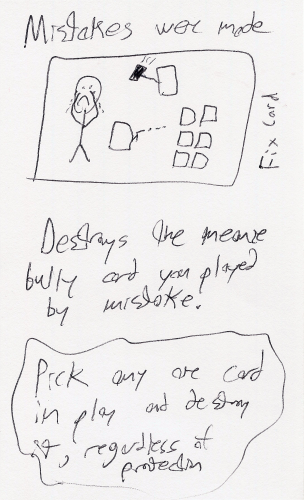 Mistakes wer made
Fix Card
Destroys the meanie
bully card you played
by mistake.
Pick any one card
in play and destroy
it, regardless of
protection